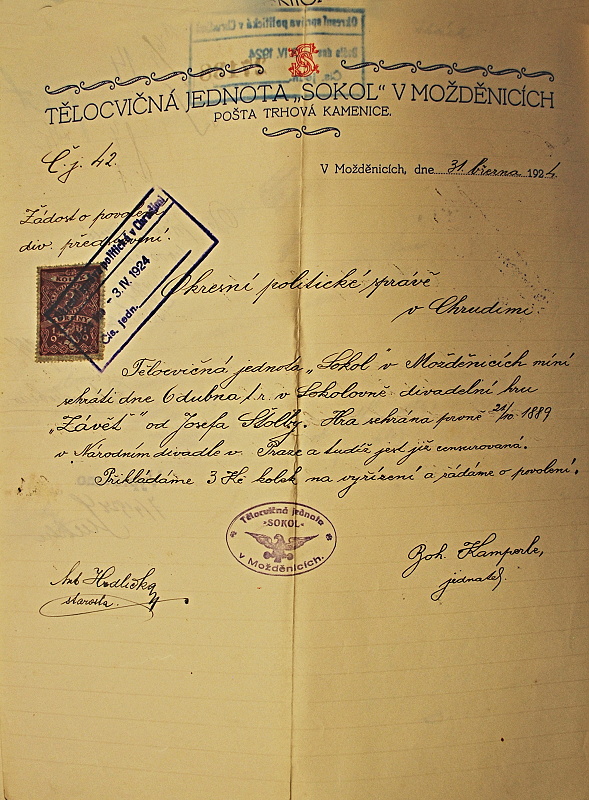 TĚLOCVIČNÁ JEDNOTA „SOKOL" V MOŽDĚNICÍCH
POŠTA TRHOVÁ KAMENICE.
Č.j. 42.
V Možděnicích, dne 31. března 1924.
Žádost o povolení
div. představení.
politická v Chrudimi
- 3. IV. 1924
Čís. jedn.
Okresní politické správě
v Chrudimi.
Tělocvičná jednota „Sokol" v Možděnicích míní
sehráti dne 6 dubna t.r. v Sokolovně divadelní hru
„Závěť" od Josefa Štolby. Hra sehrána prvně 21/10 1889
v Národním divadle v Praze a tudíž jest již censurovaná.
Přikládáme 3 Kč kolek na vyřízení a žádáme o povolení.
Tělocvičná jednota
„SOKOL"
v Možděnicích.
Ant Hodlička
starosta.
Boh. Kamperle,
jednatel.